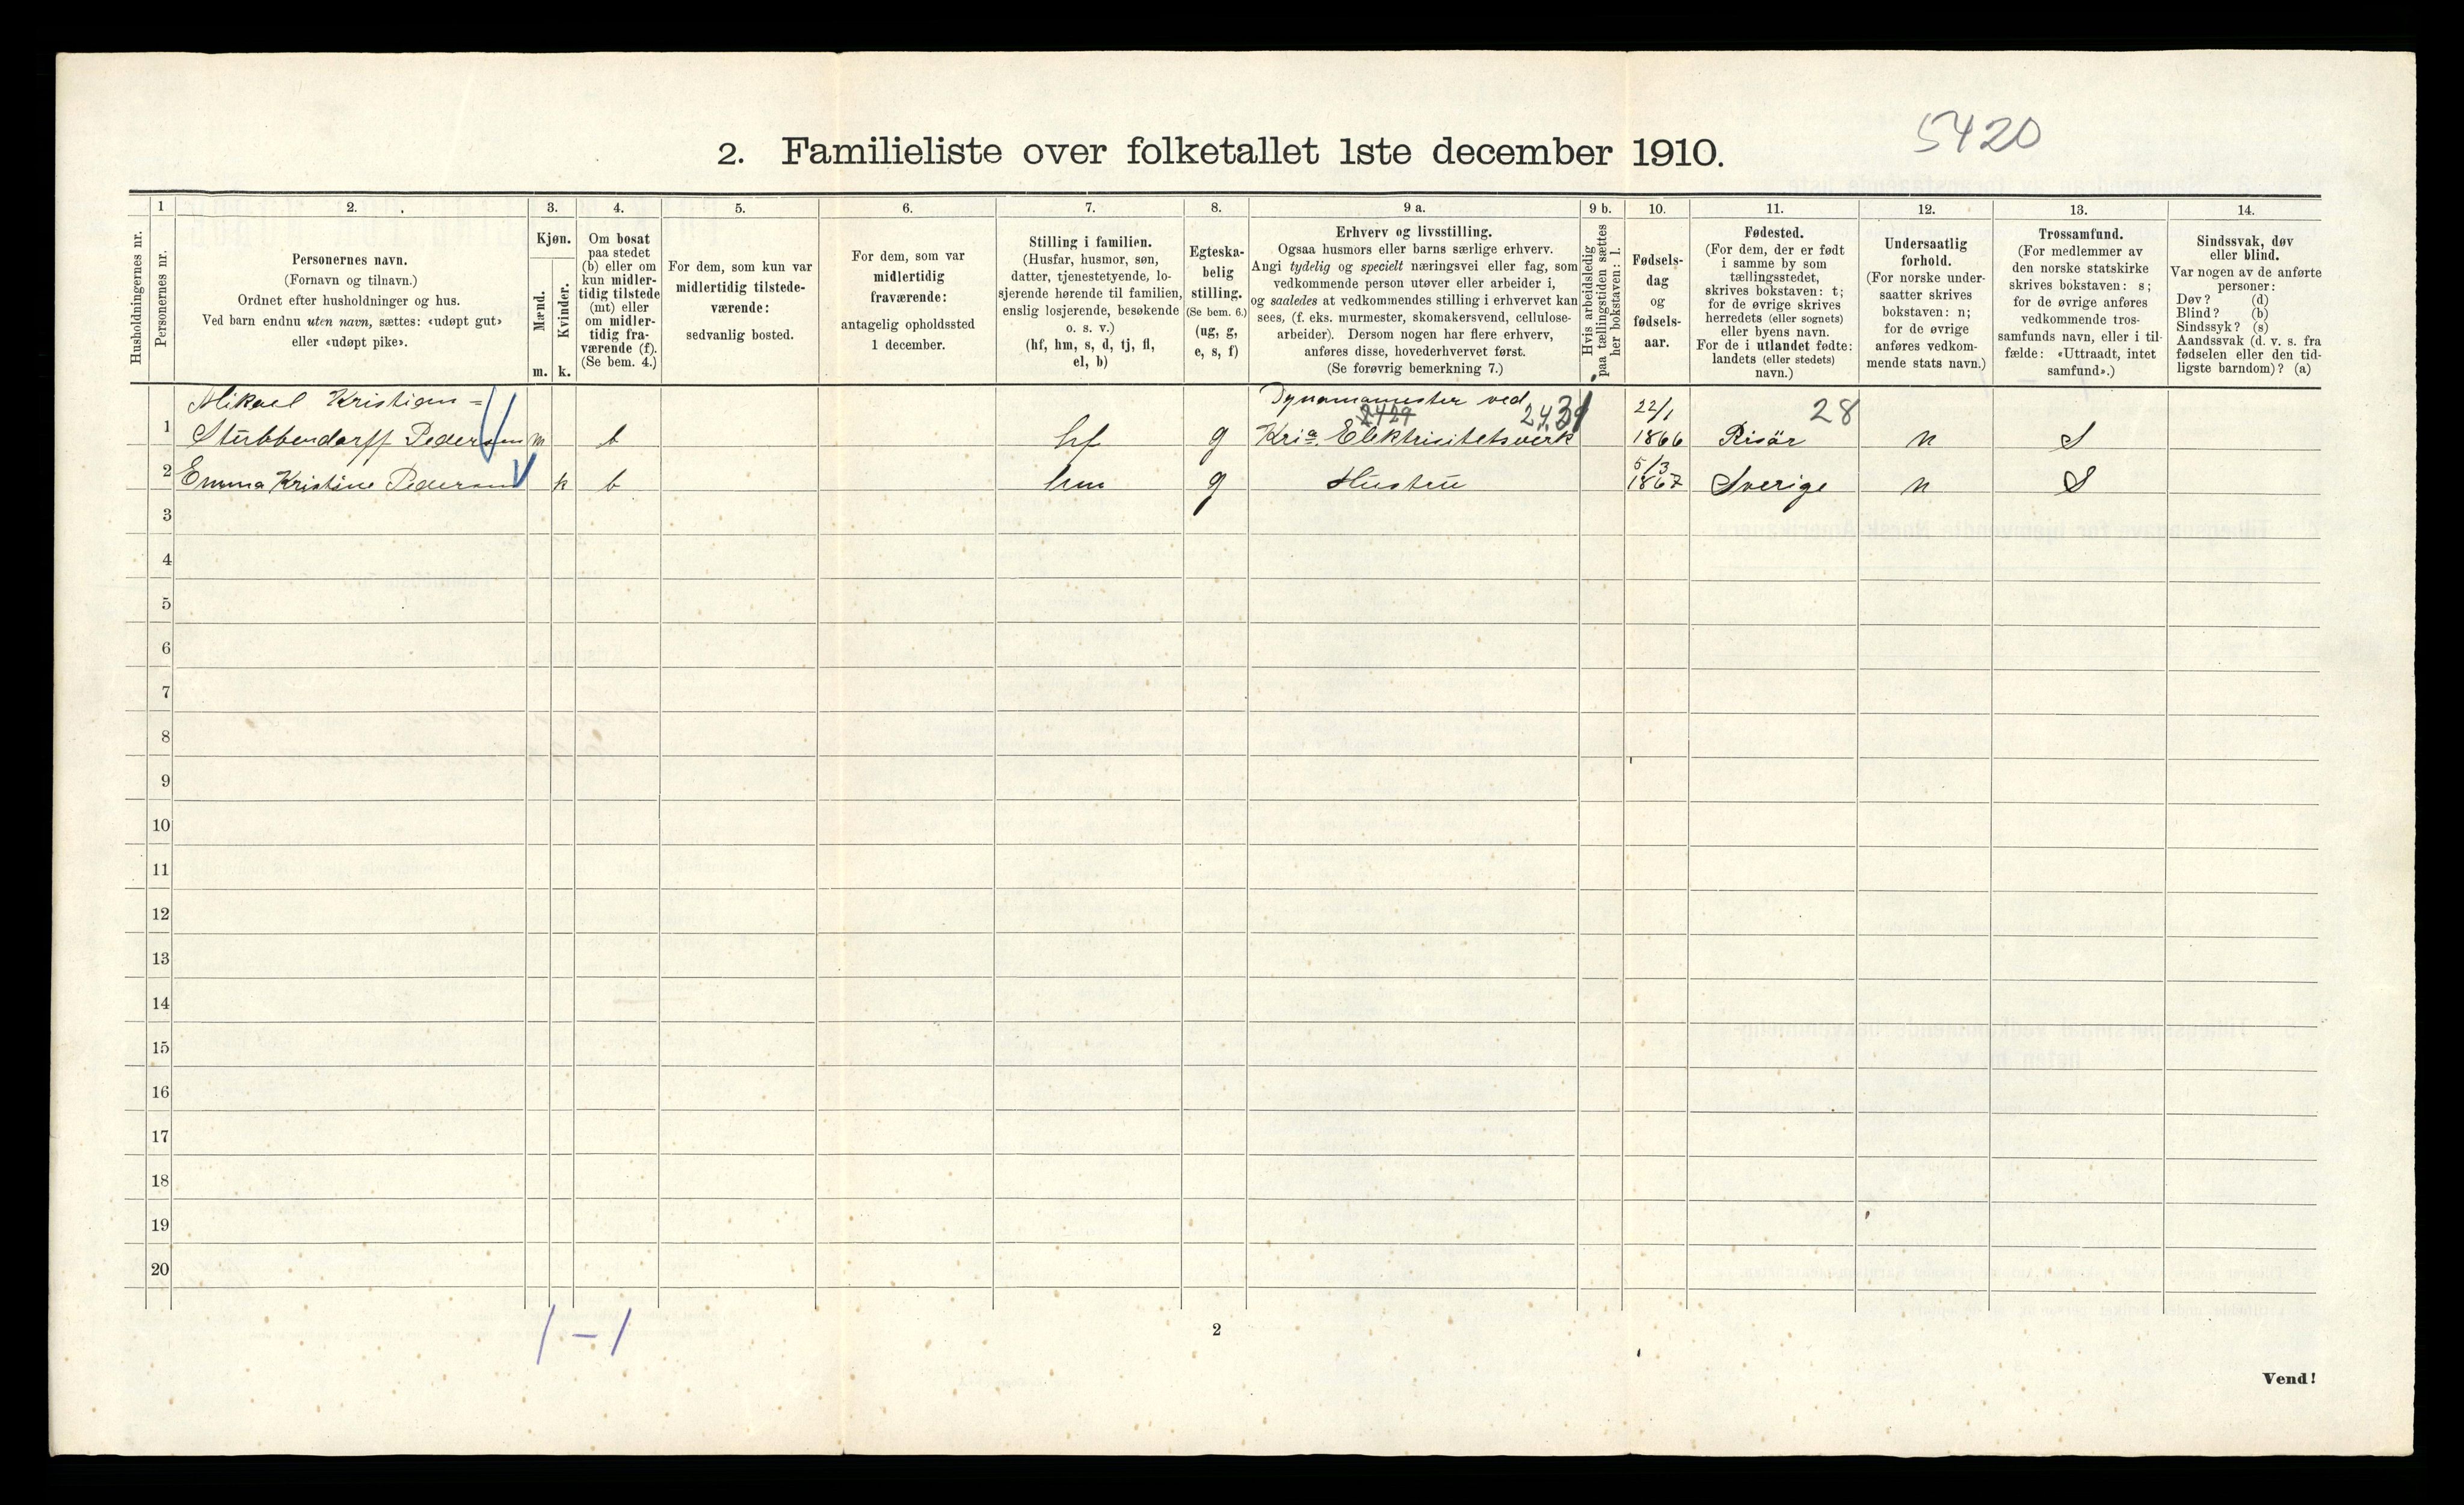 5420
2. Familieliste over folketallet 1ste december 1910.
1 2. 3. 4. 5. 6. 7. 8. 9 a. 9 b. 10. 11. 12. 13. 14.
Husholdningernes nr.
Personernes nr.
Personernes navn.
(Fornavn og tilnavn.)
Ordnet efter husholdninger og hus.
Ved barn endnu uten navn, sættes: «udøpt gut»
eller «udøpt pike».
Kjøn.
Mænd.
m.
Kvinder.
k.
Om bosat
paa stedet
(b) eller om
kun midler-
tidig tilstede
(mt) eller
om midler-
tidig fra-
værende (f).
(Se bem. 4.)
For dem, som kun var
midlertidig tilstede-
værende:
sedvanlig bosted.
For dem, som var
midlertidig
fraværende:
antagelig opholdssted
1 december.
Stilling i familien.
(Husfar, husmor, søn,
datter, tjenestetyende, lo-
sjerende hørende til familien,
enslig losjerende, besøkende
o. s. v.)
(hf, hm, s, d, tj, fl,
el, b)
Egteska-
belig
stilling.
(Se bem. 6.)
(ug, g,
e, s, f)
Erhverv og livsstilling.
Ogsaa husmors eller barns særlige erhverv.
Angi tydelig og specielt næringsvei eller fag, som
vedkommende person utøver eller arbeider i,
og saaledes at vedkommendes stilling i erhvervet kan
sees, (f. eks. murmester, skomakersvend, cellulose-
arbeider). Dersom nogen har flere erhverv,
anføres disse, hovederhvervet først.
(Se forøvrig bemerkning 7.)
Hvis arbeidsledig
paa tællingstiden sættes
her bokstaven: l.
Fødsels-
dag
og
fødsels-
aar.
Fødested.
(For dem, der er født
i samme by som
tællingsstedet,
skrives bokstaven: t;
for de øvrige skrives
herredets (eller sognets)
eller byens navn.
For de i utlandet fødte:
landets (eller stedets)
navn.)
Undersaatlig
forhold.
(For norske under-
saatter skrives
bokstaven: n;
for de øvrige
anføres vedkom-
mende stats navn.)
Trossamfund.
(For medlemmer av
den norske statskirke
skrives bokstaven: s;
for de øvrige anføres
vedkommende tros-
samfunds navn, eller i til-
fælde: «Uttraadt, intet
samfund».)
Sindssvak, døv
eller blind.
Var nogen av de anførte
personer:
Døv? (d)
Blind? (b)
Sindssyk? (s)
Aandssvak (d. v. s. fra
fødselen eller den tid-
ligste barndom)? (a)
Mikael Kristian = Dynamomester ved 22/1 28
2429 2431
1 Stubbendorff Pedersen m b hf g Kria. Elektrisitetsverk 1866 Risör n S
5/3
2 Emma Kristine Pedersen k b hm g Hustru 1867 Sverige n S
3
4
5
6
7
8
9
10
11
12
13
14
15
16
17
18
19
20
1 – 1
2
Vend!